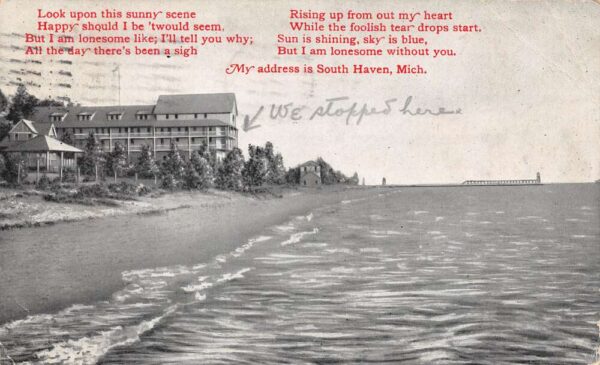 Look upon this sunny scene
Happy should I be 'twould seem.
But I am lonesome like; I'll tell you why;
All the day there's been a sigh
Rising up from out my heart
While the foolish tear drops start.
Sun is shining, sky is blue,
But I am lonesome without you.
My address is South Haven, Mich.
We stopped here.